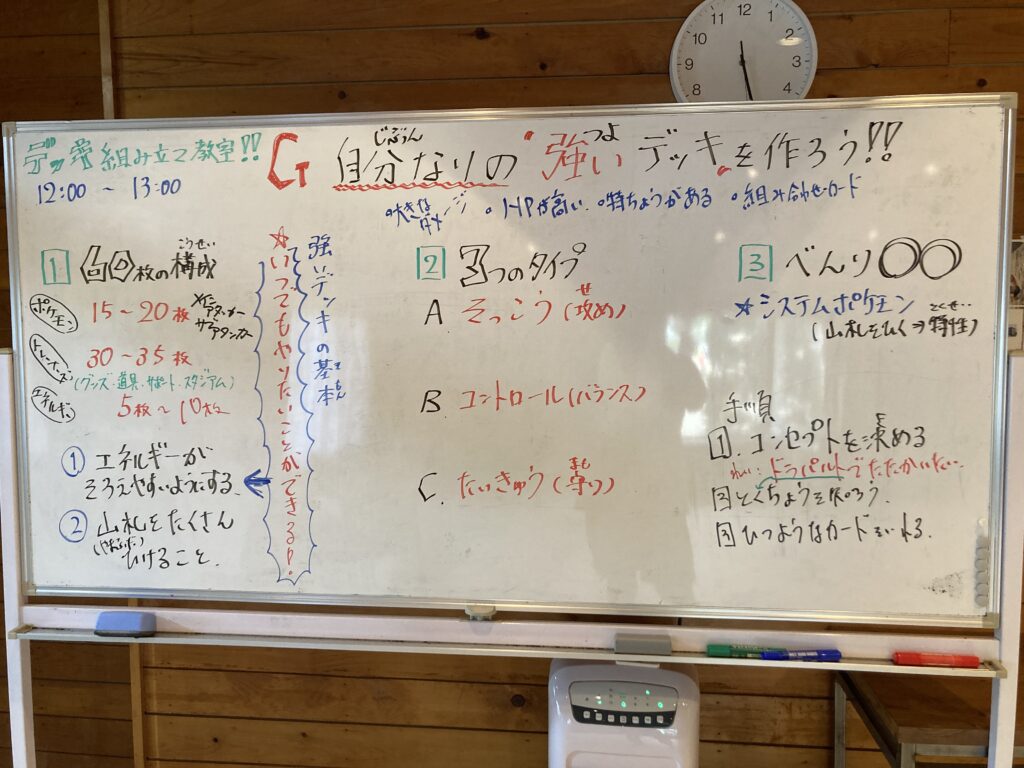 デッキ組み立て教室!!
12:00 ~ 13:00
G 自分なりの"強い"デッキを作ろう!!
じぶん
つよ
・大きなダメージ ・HPが高い ・特ちょうがある ・組み合わせカード
1 60枚の構成
こうせい
ポケモン 15~20枚 メインアタッカー
サブアタッカー
トレーナーズ 30~35枚
(グッズ・道具・サポート・スタジアム)
エネルギー 5枚~10枚
① エネルギーが
そろえやすいようにする
② 山札をたくさん
(やまふだ)
ひけること.
強いデッキの基本
きほん
☆いつでもやりたいことができる!
2 3つのタイプ
A そっこう(攻め)
せ
B コントロール(バランス)
C. たいきゅう(守り)
まも
3 べんり○○
☆システムポケモン
(山札をひく⇒特性)
とくせい
手順
1. コンセプトを決める
き
れい:ドラパルトでたたかいたい.
2 とくちょうを知ろう.
3 ひつようなカードをいれる.
12
1
2
3
4
8
9
10
11